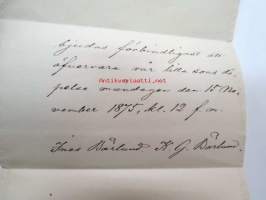 bjudas förbindligast att
öfvervara vår lilla sons dö-
pelse måndagen den 15 No-
vember 1875, kl. 12 f.m.
Ines Bärlund K G Bärlund.
Antikvariaatti.net